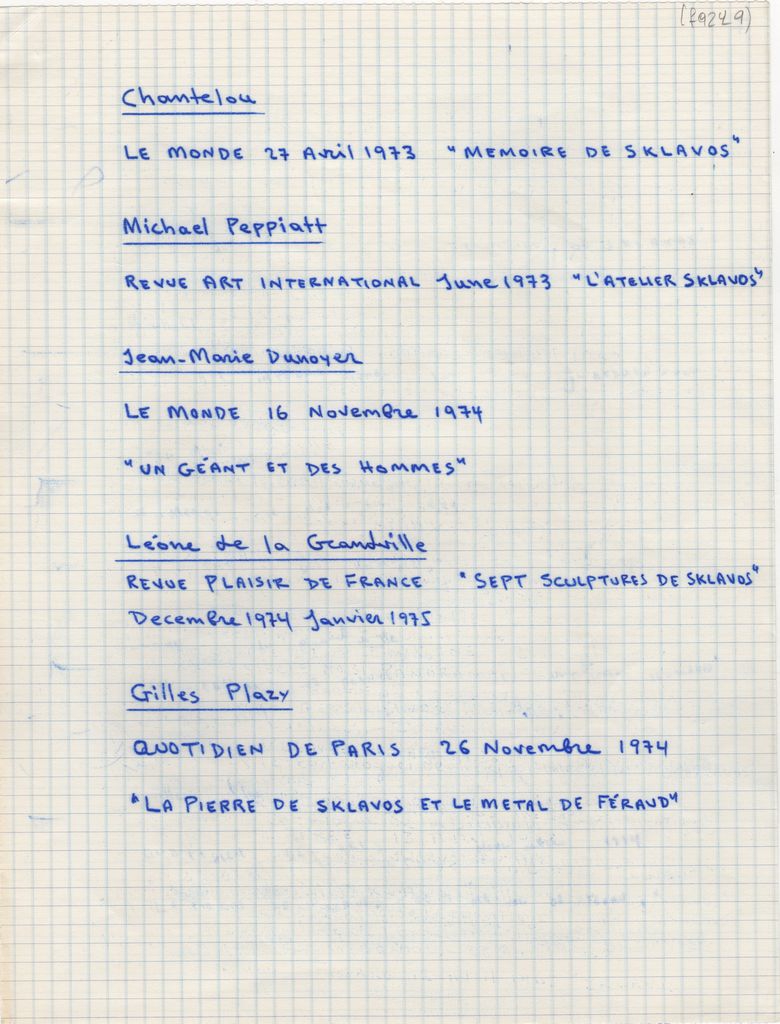 (f9249)
Chantelou
LE MONDE 27 Avril 1973 "MEMOIRE DE SKLAVOS"
Michael Peppiatt
REVUE ART INTERNATIONAL June 1973 "L'ATELIER SKLAVOS"
Jean-Marie Dunoyer
LE MONDE 16 Novembre 1974
"UN GÉANT ET DES HOMMES"
Léone de la Grandville
REVUE PLAISIR DE FRANCE "SEPT SCULPTURES DE SKLAVOS"
Decembre 1974 Janvier 1975
Gilles Plazy
QUOTIDIEN DE PARIS 26 Novembre 1974
"LA PIERRE DE SKLAVOS ET LE METAL DE FÉRAUD"